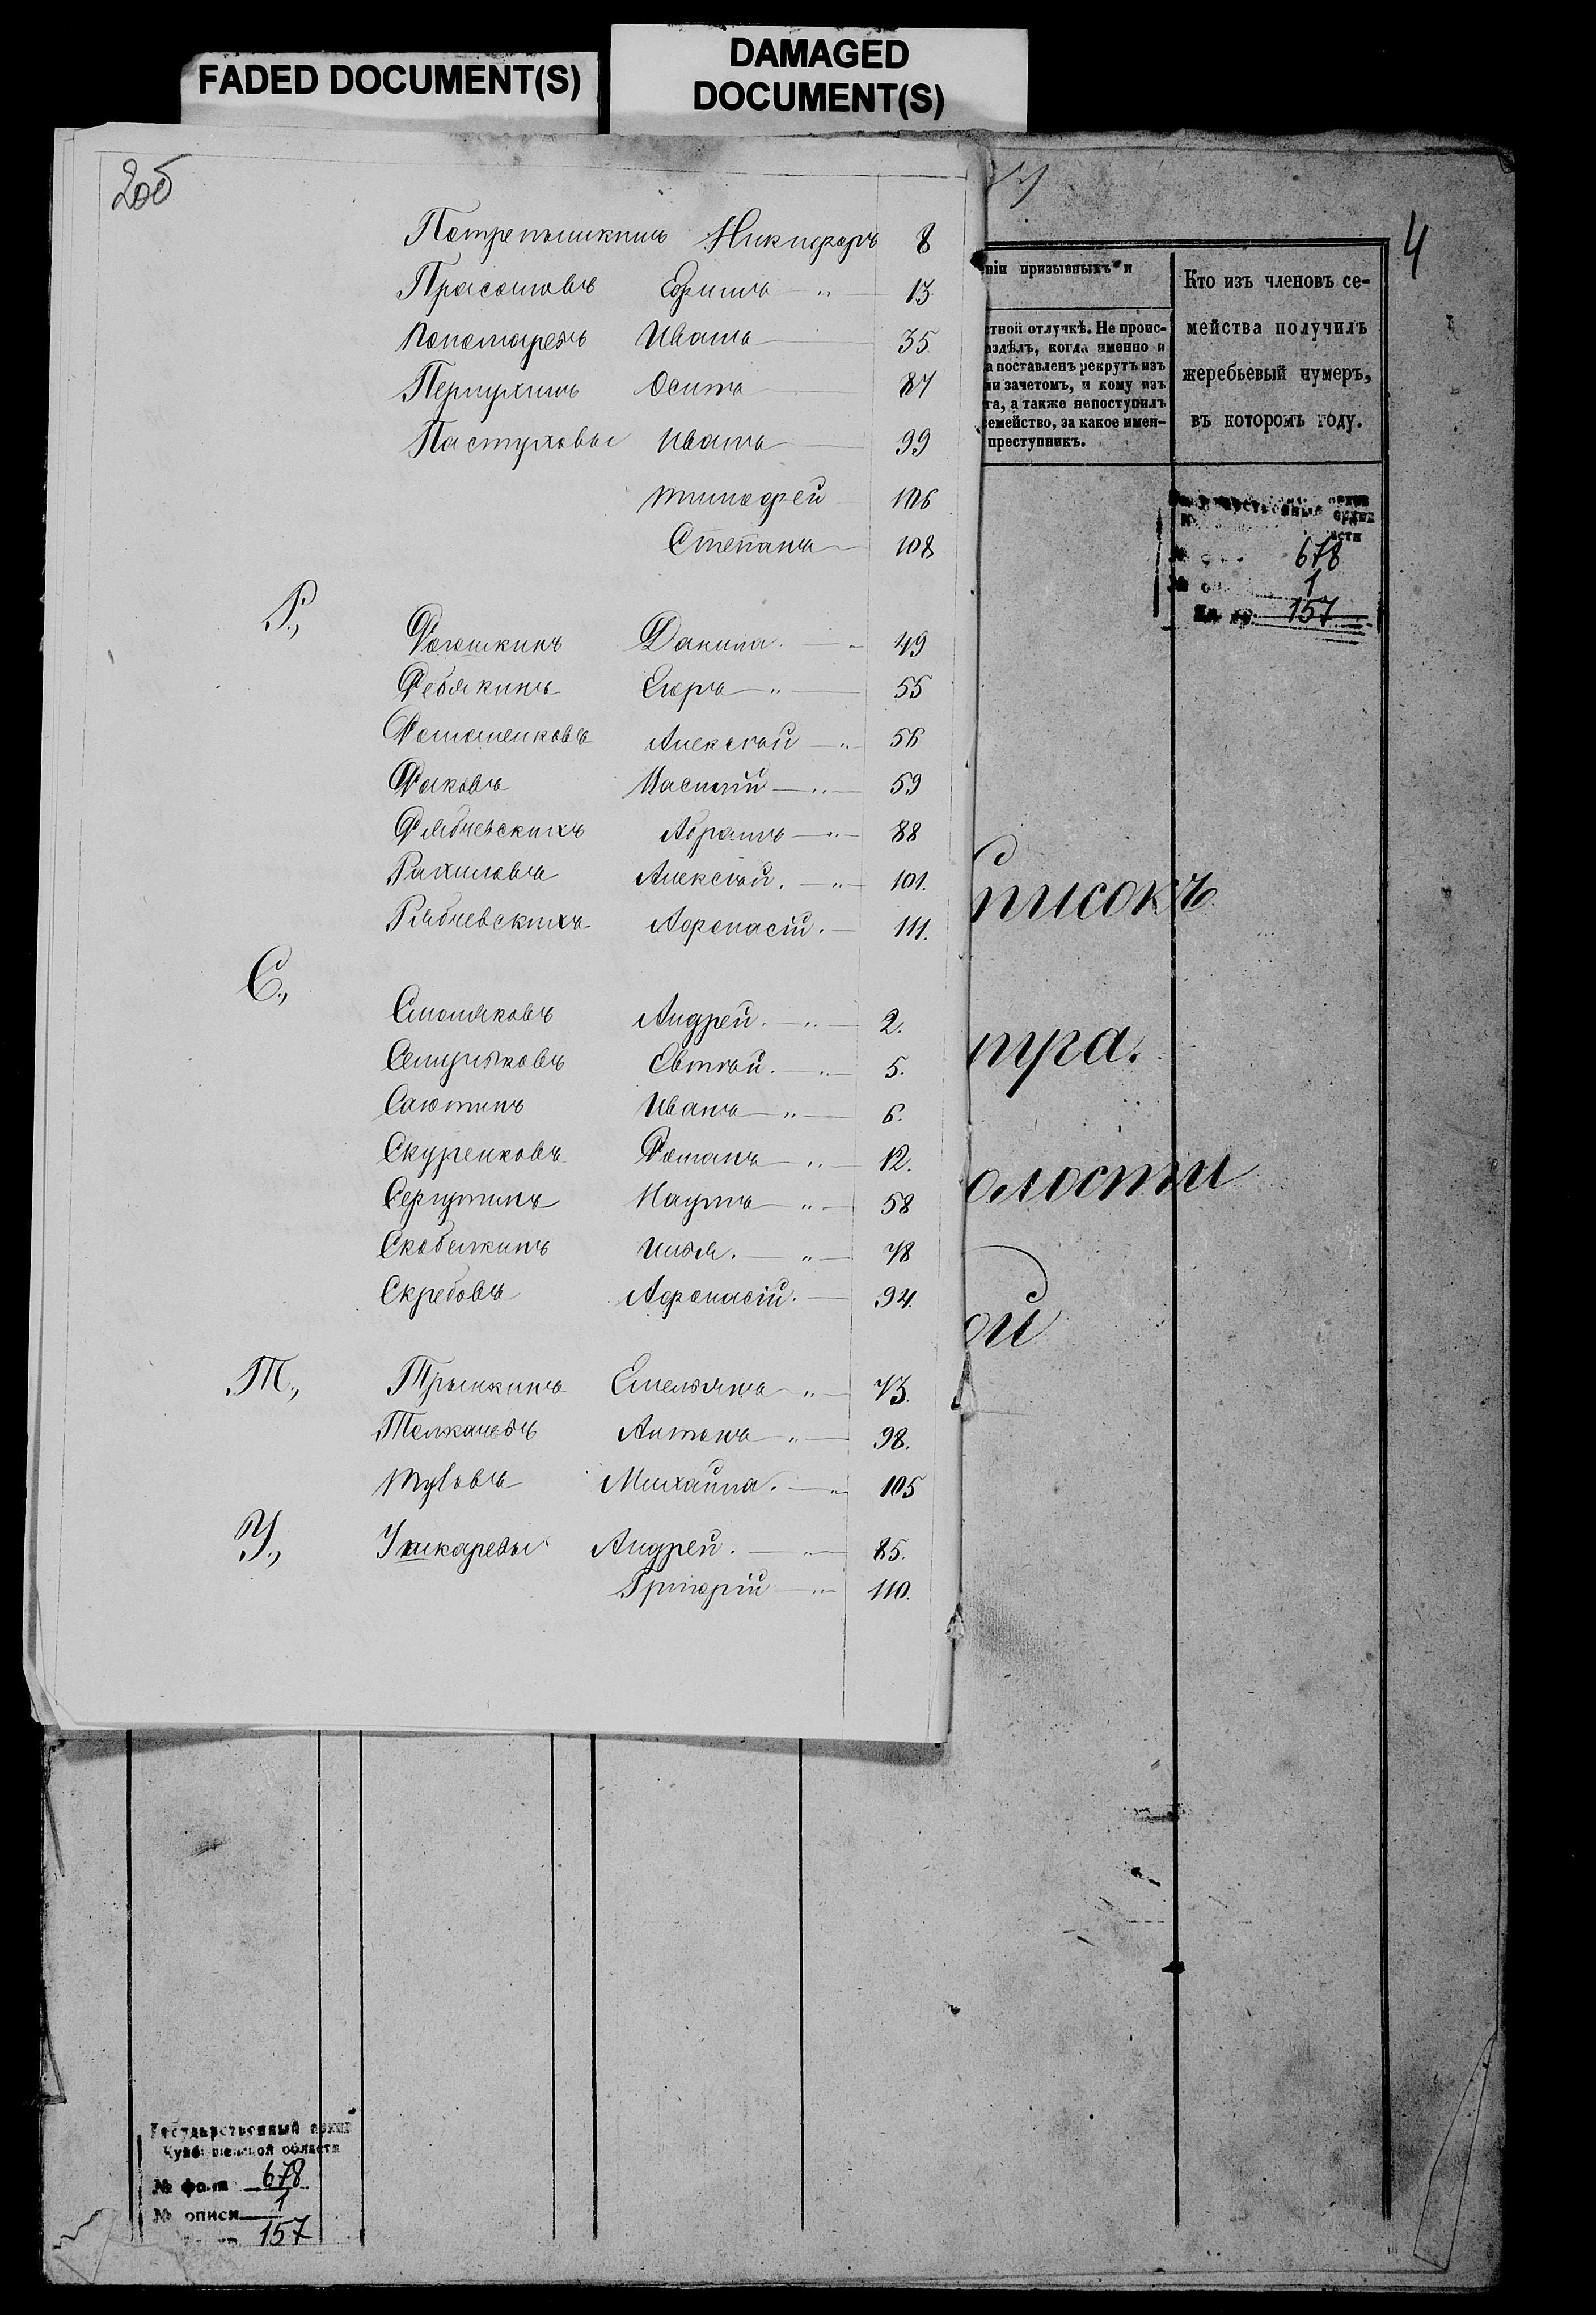 FADED DOCUMENT(S)
DAMAGED
DOCUMENT(S)
2об
Потрепышкинъ Никифоръ 8
Прасоловъ Ефимъ — „ — 13.
Пономаревъ Иванъ — 35
Пермухинъ Осипъ — 87
Пастуховы Иванъ — 99
Тимофей 106
Степанъ — 108
Р.,
Рогошкинъ Данила. — „ 49
Ребякинъ Егоръ — „ — 55
Ромоненковъ Алексѣй — „ — 56
Раковъ Василій — „ — 59
Рябчевскихъ Абрамъ — „ — 88
Рахиловъ Алексѣй. — „ — 101.
Рябчевскихъ Афонасій. — 111.
С.,
Смоляковъ Андрей. — „ — 2.
Семушковъ Евтѣй. — „ — 5.
Саютинъ Иванъ — „ — 6.
Скуренковъ Романъ — „ — 12.
Сергутинъ Наумъ — „ — 58
Скобелкинъ Илья. — „ — 78
Скребовъ Афонасій. — 94.
Т.,
Трынкинъ Емельянъ — „ — 73.
Толкачевъ Антонъ — „ — 98.
Тувовъ Михайла. — „ 105
У.,
Ушкаревы Андрей. — „ — 85.
Григорій — „ — 110.
4
ніи призывныхъ и
стной отлучкѣ. Не проис-
аздѣлъ, когда именно и
а поставленъ рекрутъ изъ
ли зачетомъ, и кому изъ
та, а также непоступилъ
семейство, за какое имен-
преступникъ.
Кто изъ членовъ се-
мейства получилъ
жеребьевый нумеръ,
въ которомъ году.
678
1
157
писокъ
тра.
олости
ой
Государственный архив
Куйбышевской области
№ фонда 678
№ описи 1
157